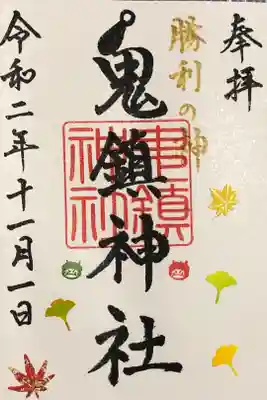 奉拝
勝利の神
鬼鎮神社
鬼鎮神社
令和二年十一月一日